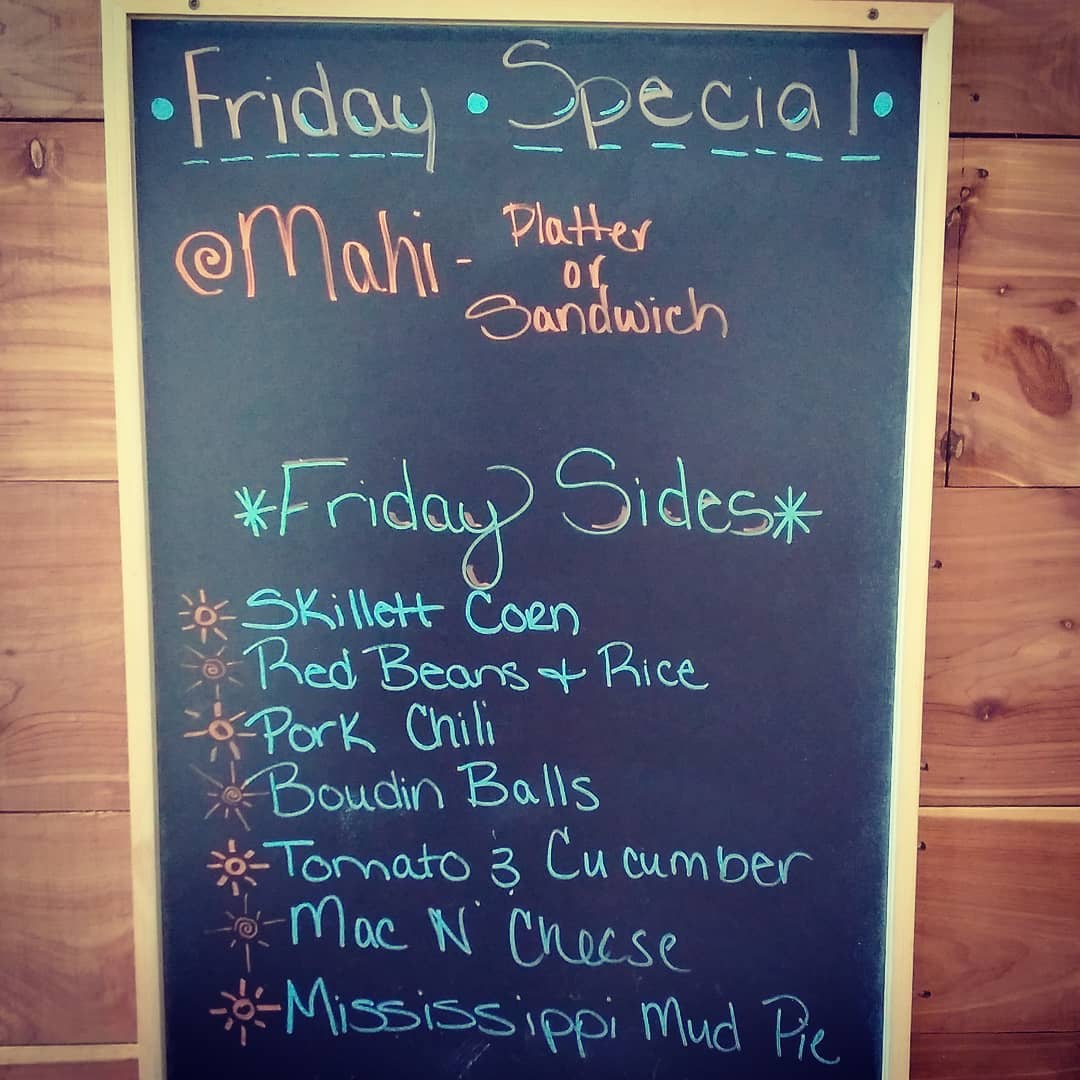 Friday • Special
@Mahi - Platter
or
Sandwich
*Friday Sides*
Skillett Corn
Red Beans & Rice
Pork Chili
Boudin Balls
Tomato & Cucumber
Mac N' Cheese
Mississippi Mud Pie